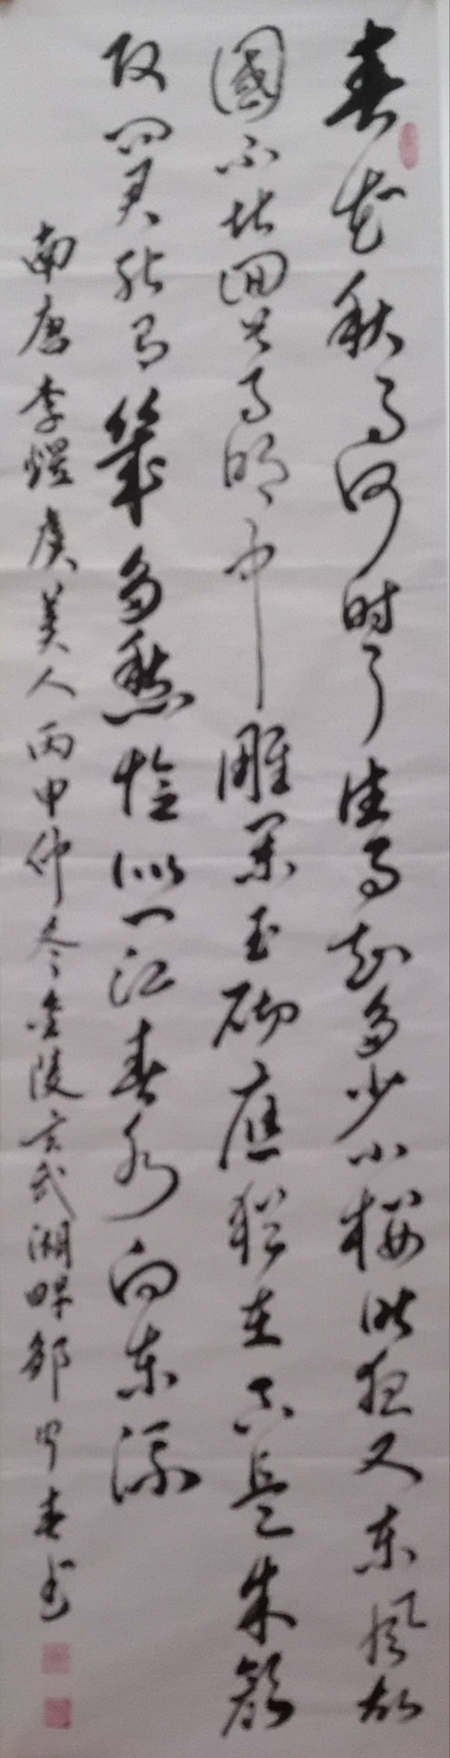 春花秋月何时了往事知多少小楼昨夜又东风故
國不堪回首月明中雕栏玉砌應猶在只是朱顔
改问君能有幾多愁恰似一江春水向东流
南唐李煜虞美人丙申仲冬金陵玄武湖畔邹春书